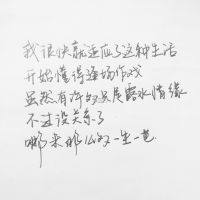 我很快就适应了这种生活
开始懂得逢场作戏
虽然有许的是露水情缘
不过没关系了
哪来那么的一生一世